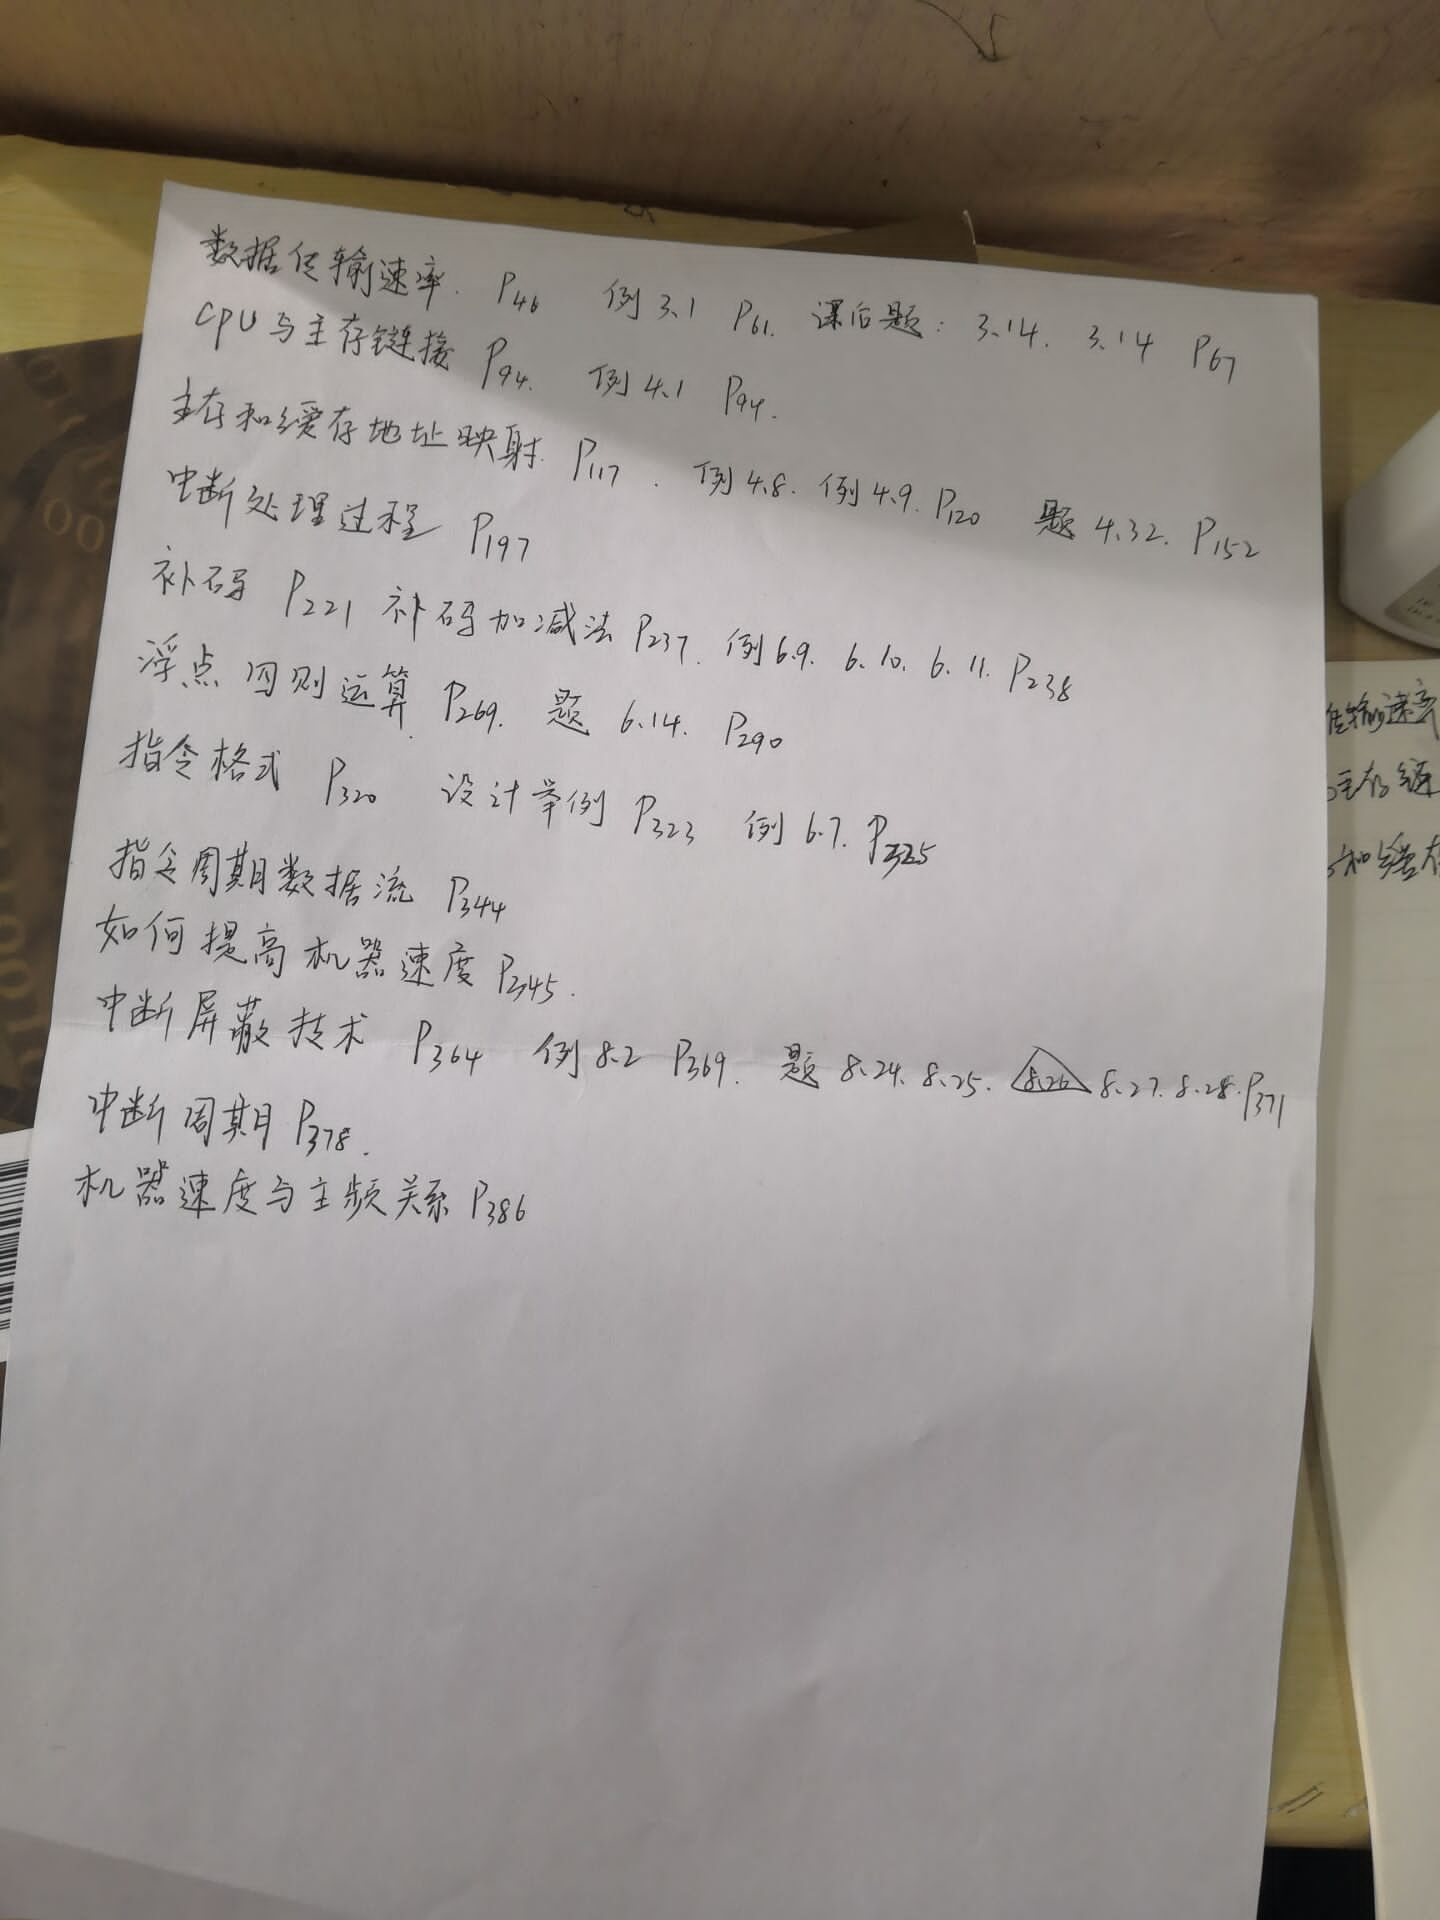 数据传输速率. P46 例3.1 P61. 课后题: 3.14. 3.14 P67
CPU与主存链接 P94. 例4.1 P94.
主存和缓存地址映射. P117. 例4.8. 例4.9. P120 题4.32. P152
中断处理过程 P197
补码 P221 补码加减法 P237. 例6.9. 6.10. 6.11. P238
浮点四则运算. P269. 题 6.14. P290
指令格式 P320 设计举例 P323 例6.7. P325
指令周期数据流 P344
如何提高机器速度 P345.
中断屏蔽技术 P364 例8.2 P369. 题8.24. 8.25. 8.26 8.27. 8.28. P371
中断周期 P378.
机器速度与主频关系 P386
传输速率
主存链
和缓存